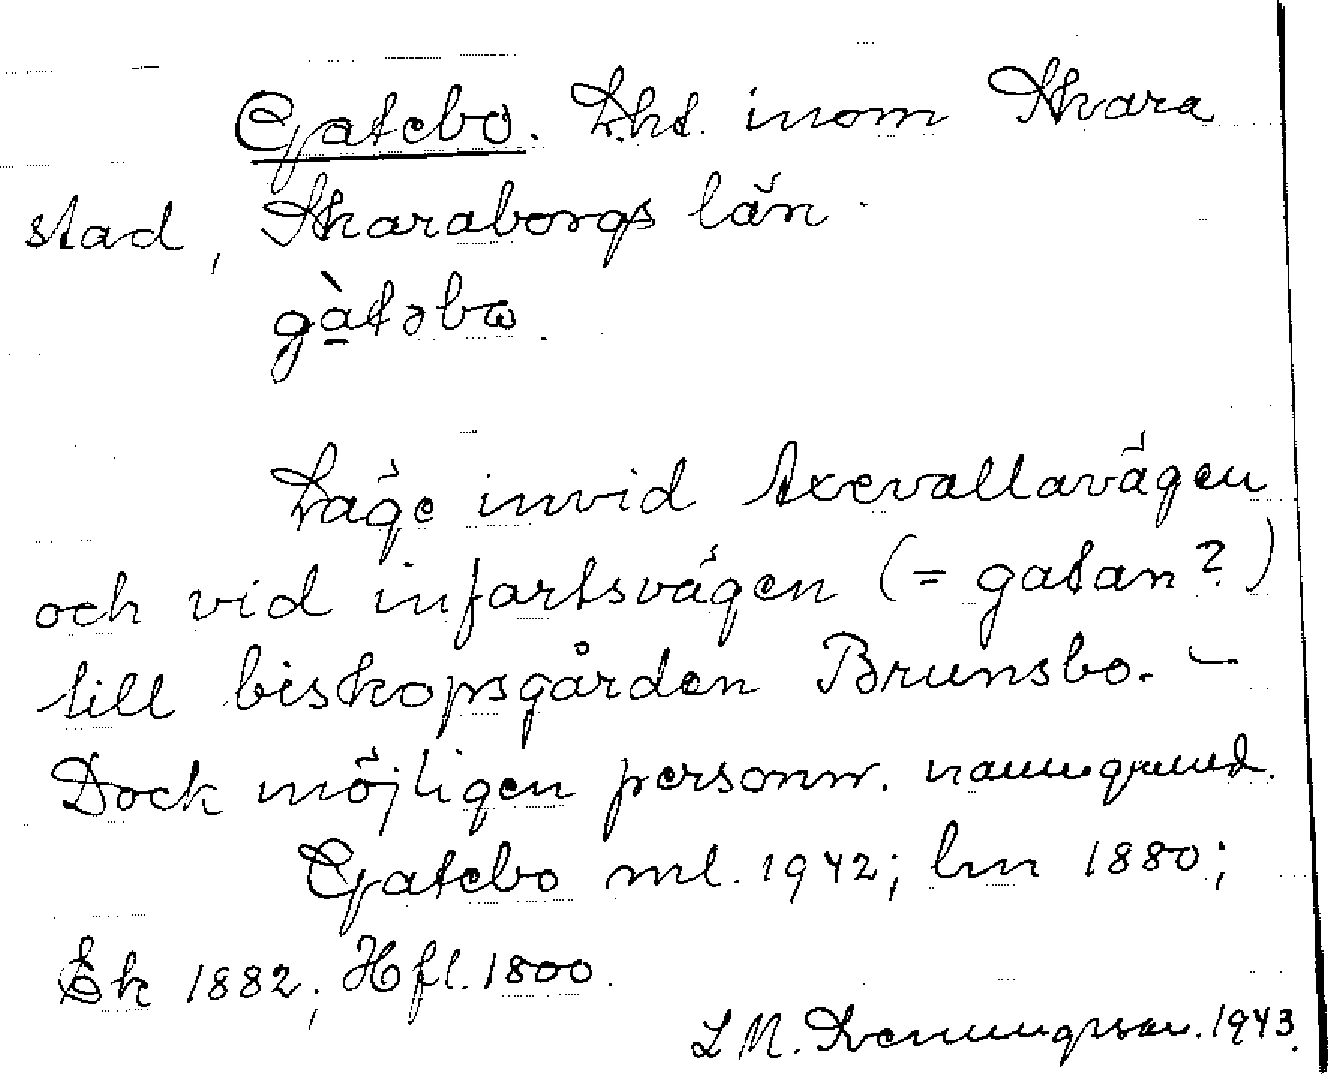 Gatebo. Lht. inom Skara
stad, Skaraborgs län.
gàtəbω.
Läge invid Axevallavägen
och vid infartsvägen (= gatan?)
till biskopsgården Brunsbo. –
Dock möjligen personn. namngrund.
Gatebo ml. 1942; lm 1880;
Ek 1882; Hfl. 1800.
L M. Svenungsson. 1943.